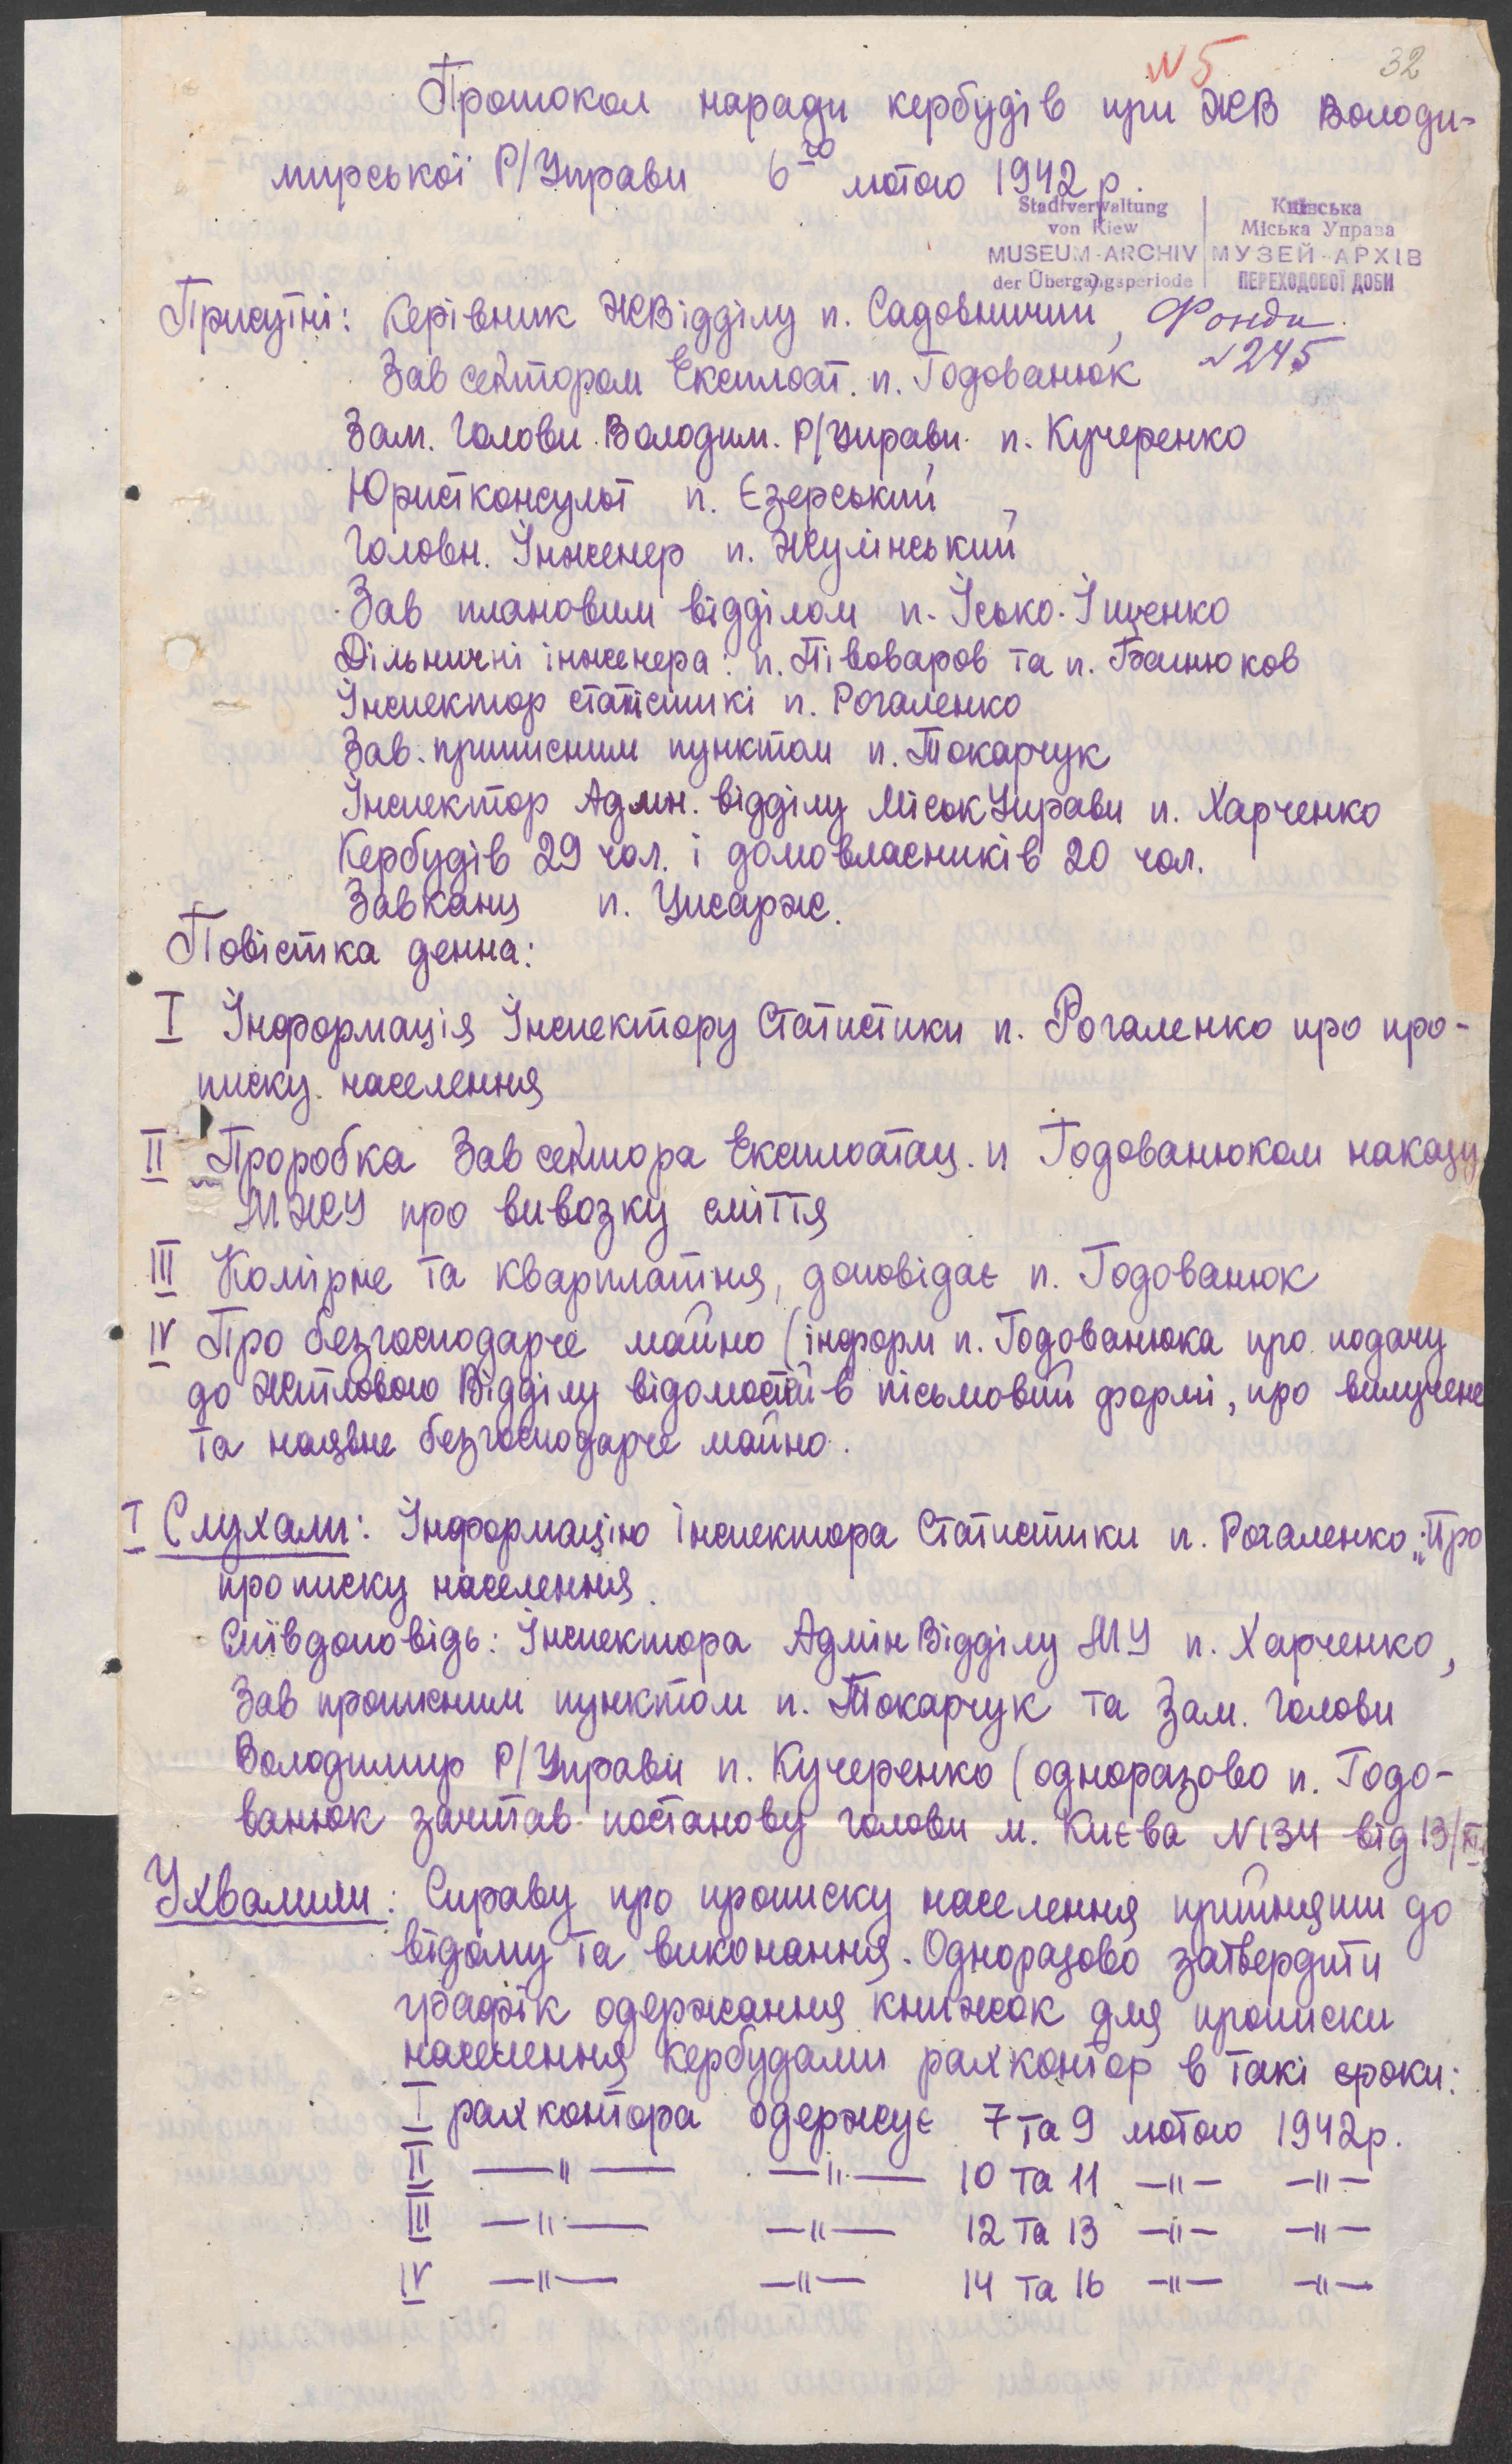 N 5
32
Протокол наради кербудів при ЖВ Володи-
мирської Р/Управи 6го лютого 1942 р.
Stadtverwaltung
von Kiew
MUSEUM-ARCHIV
der Übergangsperiode
Київська
Міська Управа
МУЗЕЙ-АРХІВ
ПЕРЕХОДОВОЇ ДОБИ
Фонди
N 245
Присутні: Керівник ЖВідділу п. Садовничий,
Зав сектором Експлоат. п. Годованюк
Зам. Голови Володим. Р/Управи п. Кучеренко
Юристконсульт п. Єзерський,
Головн. Інженер п. Жулінський
Зав плановим відділом п. Ісько-Іщенко
Дільничні інженера: п. Півоваров та п. Башнюков
Інспектор статистикі п. Рогаленко
Зав. приписним пунктом п. Токарчук
Інспектор Адмін. відділу МіськУправи п. Харченко
Кербудів 29 чол. і домовласників 20 чол.
Завканц п. Цисарж.
Повістка денна:
I Інформація Інспектору Статистики п. Рогаленко про про-
писку населення
II Проробка Зав сектора Експлоатац. п Годованюком наказу
МЖУ про вивозку сміття
III Комірне та Квартплатня, доповідає п. Годованюк
IV Про безгосподарче майно (інформ п. Годованюка про подачу
до Житлового Відділу відомостій в пісьмовий формі, про вилучене
та наявне безгосподарче майно.
I Слухали: Інформацію Інспектора Статистики п. Рогаленко „Про
прописку населення.
Співдоповідь: Інспектора АдмінВідділу МУ п. Харченко,
Зав прописним пунктом п. Токарчук та Зам. Голови
Володимир Р/Управи п. Кучеренко (одноразово п. Годо-
ванюк зачитав постанову голови м. Києва N 134 від 13/XI
Ухвалили: Справу про прописку населення прийняти до
відому та виконання. Одноразово затвердити
графік одержання книжок для прописки
населення кербудами рахконтор в такі сроки:
I рахконтора одержує 7 та 9 лютого 1942р.
II —"— —"— 10 та 11 —"— —"—
III —"— —"— 12 та 13 —"— —"—
IV —"— —"— 14 та 16 —"— —"—